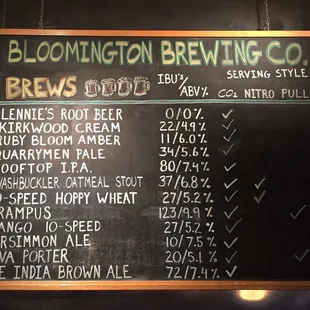 BLOOMINGTON BREWING CO.
BREWS IBU's/ABV% SERVING STYLE
CO₂ NITRO PULL
LENNIE'S ROOT BEER 0/0%
KIRKWOOD CREAM 22/4.9%
RUBY BLOOM AMBER 11/6.0%
QUARRYMEN PALE 34/5.6%
ROOFTOP I.P.A. 80/7.4%
WASHBUCKLER OATMEAL STOUT 37/6.8%
0-SPEED HOPPY WHEAT 27/5.2%
RAMPUS 123/9.9%
ANGO 10-SPEED 27/5.2%
ERSIMMON ALE 10/7.5%
VA PORTER 20/5.1%
E INDIA BROWN ALE 72/7.4%